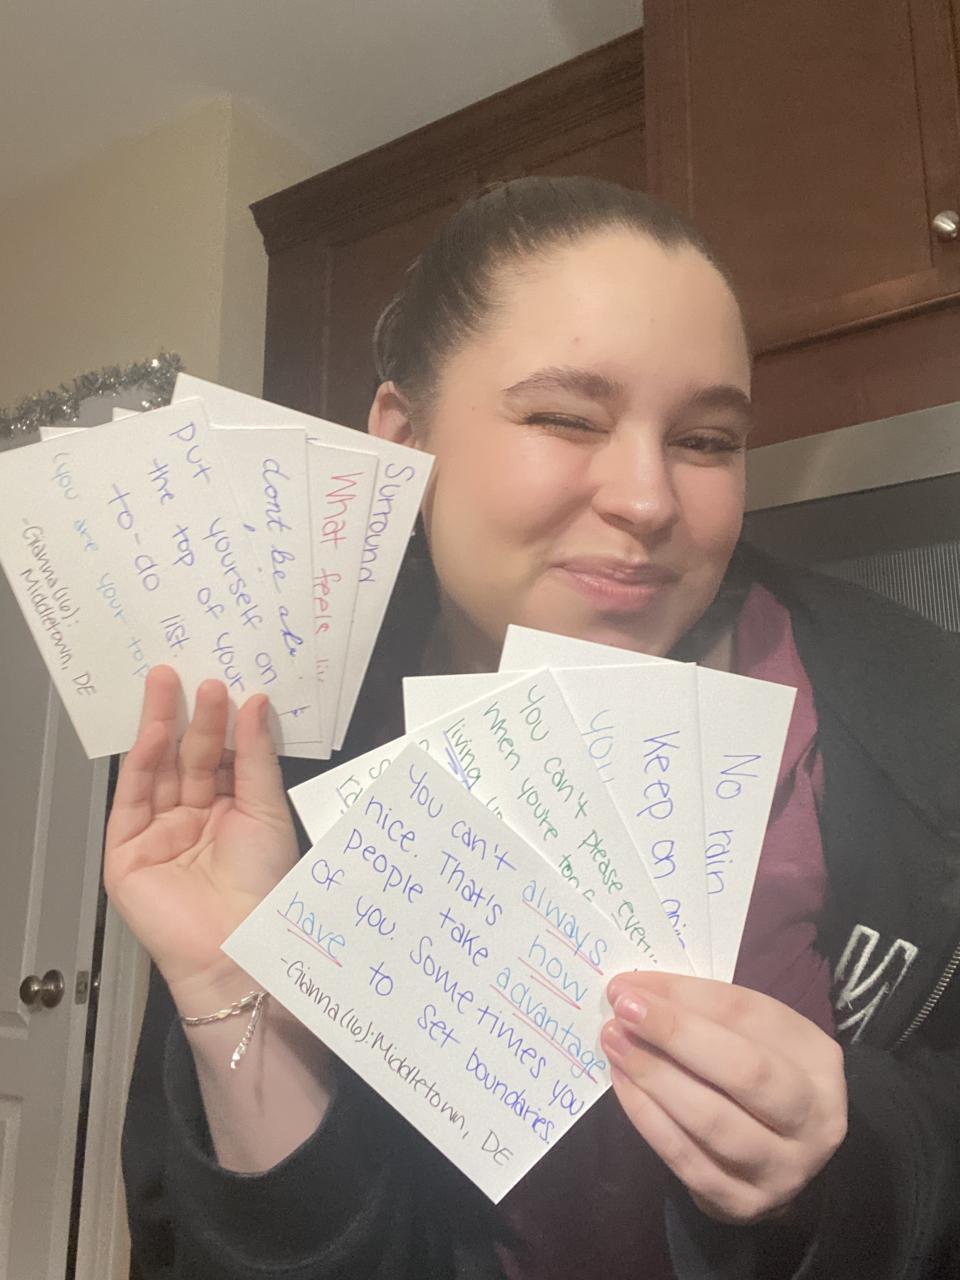 Surround
What feels
dont be
put
yourself on
the top of your
to-do list.
(you are your top
-Gianna(16):
Middletown, DE
No rain
Keep on
you
you can't please
when you're
living
you can't always
nice. That's how
people take advantage
of you. Sometimes you
have to set boundaries.
-Gianna(16): Middletown, DE